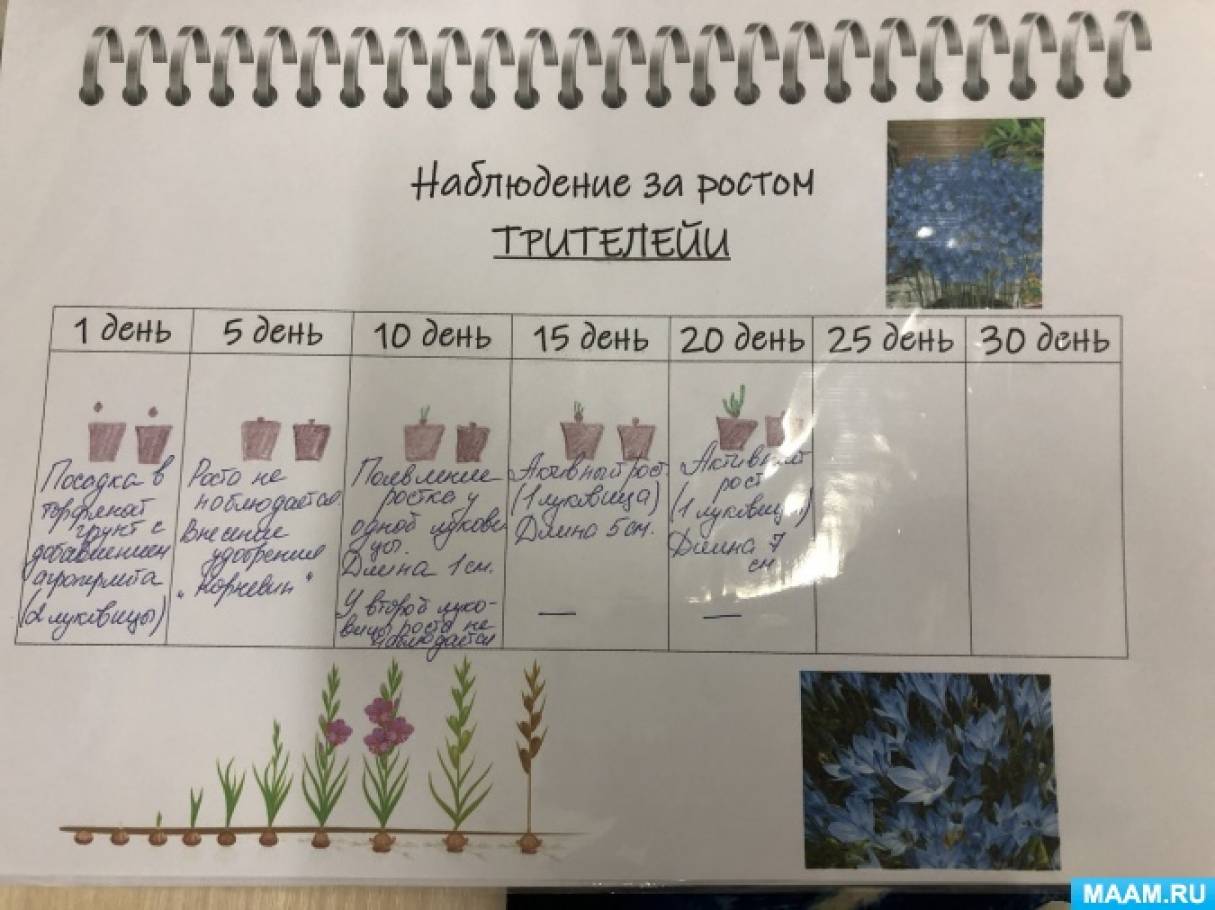 Наблюдение за ростом
ТРИТЕЛЕЙИ
1 день 5 день 10 день 15 день 20 день 25 день 30 день
Посадка в
торфяной
грунт с
добавлением
агроперлита
(2 луковицы)
Роста не
наблюдается.
Внесение
удобрения
"Корневин"
Появление
ростка у
одной лукови
цы.
Длина 1 см.
У второй луко-
вицы роста не
наблюдается
Активный рост
(1 луковица)
Длина 5 см.
—
Активный
рост
(1 луковица)
Длина 7
см
—
MAAM.RU